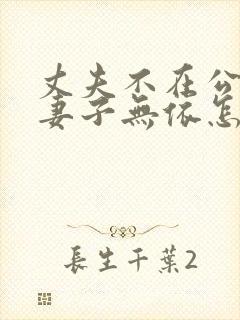 丈夫不在公
妻子無依怎
長生千葉2